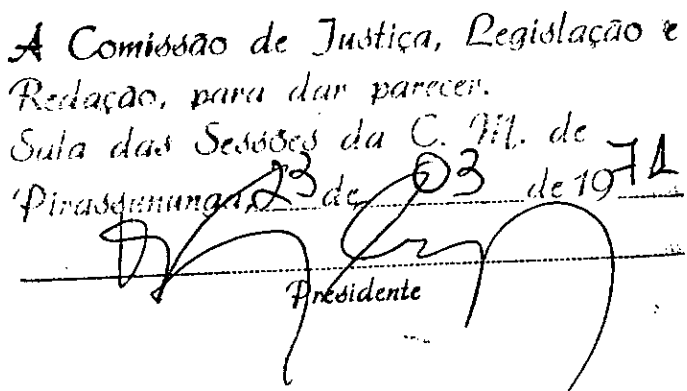 À Comissão de Justiça, Legislação e
Redação, para dar parecer.
Sala das Sessões da C. M. de
Pirassununga, 23 de 03 de 1971
Presidente